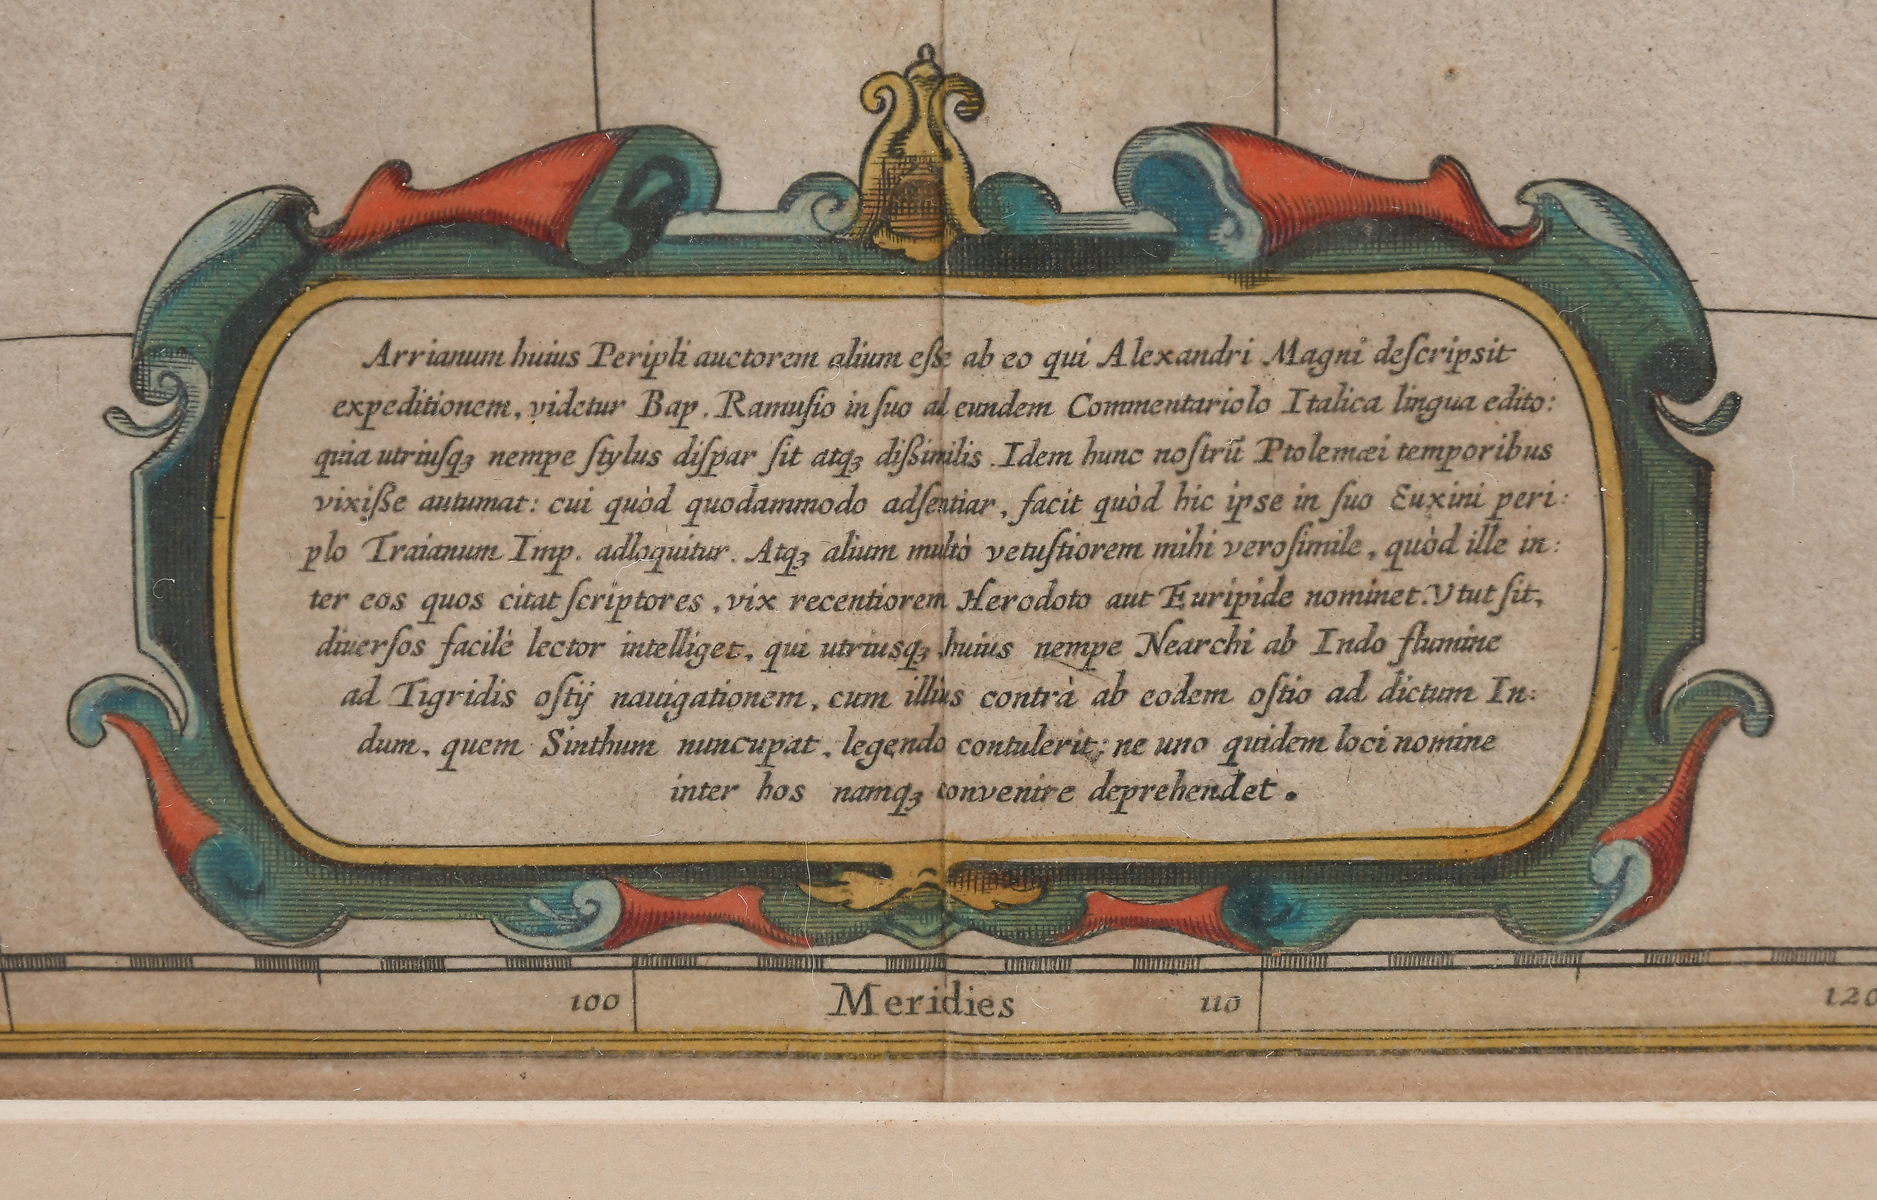 Arrianum huius Peripli auctorem alium eſſe ab eo qui Alexandri Magni deſcripsit
expeditionem, videtur Bap. Ramuſio in ſuo ad eundem Commentariolo Italica lingua edito:
quia utriuſqꝫ nempe ſtylus diſpar ſit atqꝫ dißimilis. Idem hunc noſtrū Ptolemæi temporibus
vixiße autumat: cui quòd quodammodo adſentiar, facit quòd hic ipse in ſuo Euxini peri:
plo Traianum Imp. adloquitur. Atqꝫ alium multò vetuſtiorem mihi veroſimile, quòd ille in:
ter eos quos citat ſcriptores, vix recentiorem Herodoto aut Euripide nominet. Vtut ſit,
diuerſos facilè lector intelliget, qui utriusqꝫ huius nempe Nearchi ab Indo flumine
ad Tigridis oſtij nauigationem, cum illius contrà ab eodem oſtio ad dictum In:
dum, quem Sinthum nuncupat, legendo contulerit; ne uno quidem loci nomine
inter hos namqꝫ convenire deprehendet.
100 Meridies 110 120